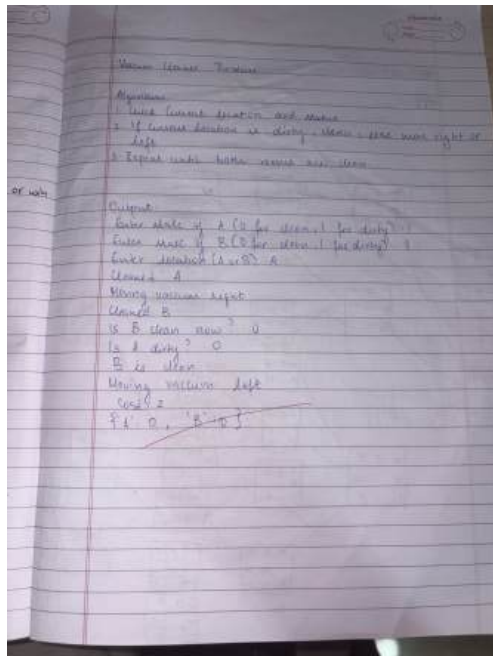 or nails
Vacuum Cleaner
Algorithm
1. Current location and status
2. If current location is dirty, clean, else move right or
left
3. Repeat until both rooms are clean
Output
Enter state of A (0 for clean, 1 for dirty) 1
Enter state of B (0 for clean, 1 for dirty) 1
Enter location (A or B) A
Cleaned A
Moving vacuum right
Cleaned B
Is B clean now? 0
Is A dirty? 0
B is clean
Moving vacuum left
Cost 2
{'A' 0, 'B' 0}